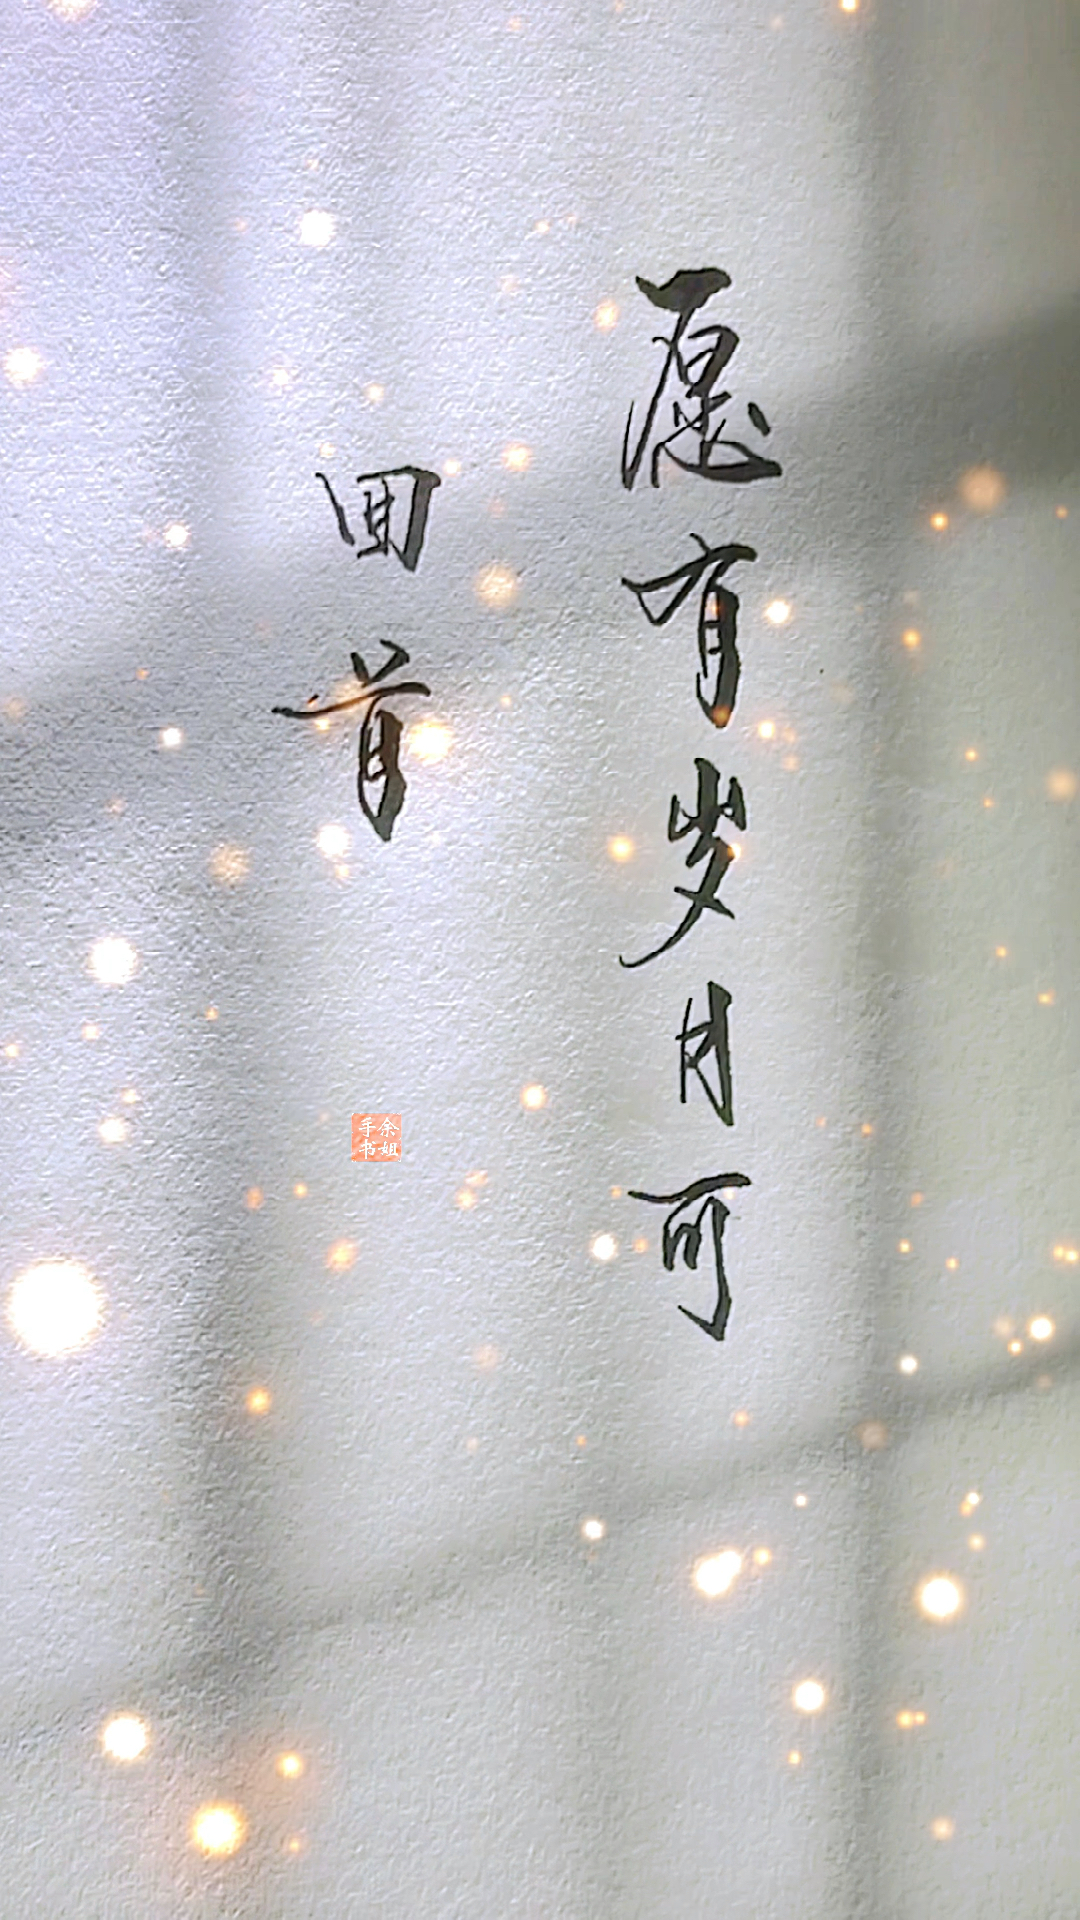 愿有岁月可
回首
余姐
手书